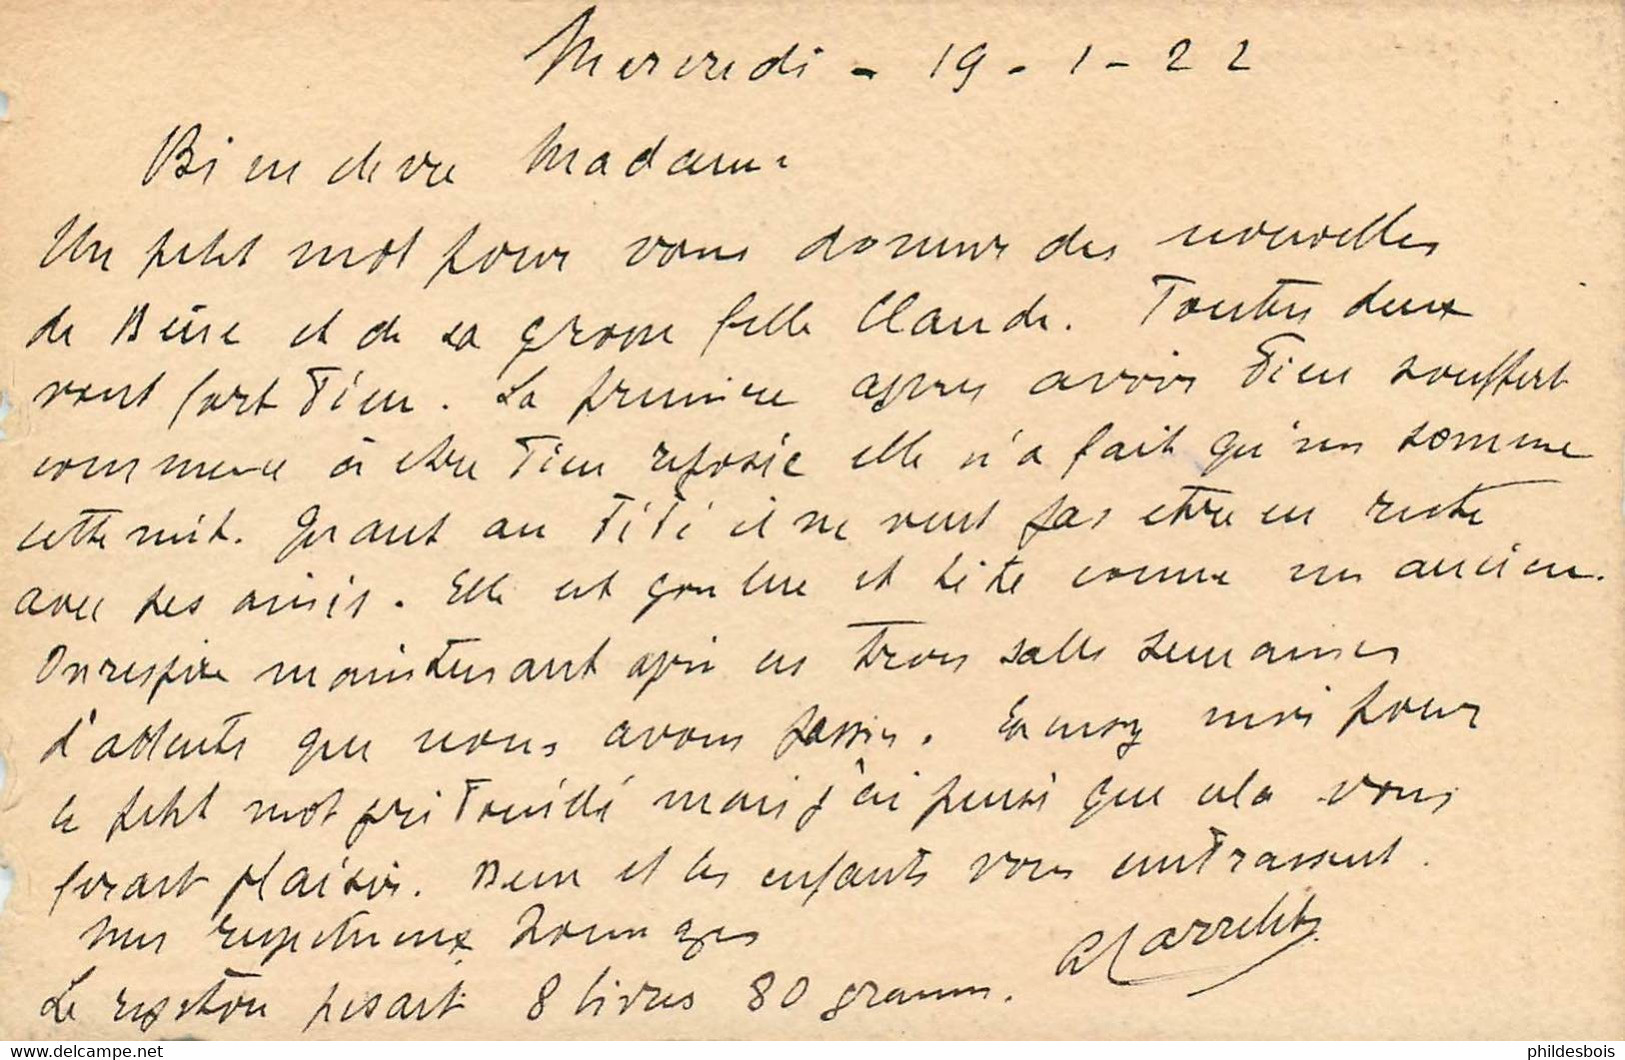 Mercredi - 19 - 1 - 22
Bien chère Madame
Un petit mot pour vous donner des nouvelles
de et de sa grosse fille Claude. Toutes deux
vont fort bien. La première après avoir bien souffert
commence à être bien reposée elle n'a fait qu'un somme
cette nuit. Quant au bébé il ne veut pas être en reste
avec ses aînés. Elle est goulue et tète comme un ancien.
On respire maintenant après ces trois sales semaines
d'attente que nous avons passées. Excusez moi pour
ce petit mot mais j'ai pensé que cela vous
ferait plaisir. et les enfants vous embrassent.
Mes respectueux hommages
Le rejeton pesait 8 livres 80 grammes.
phildesbois